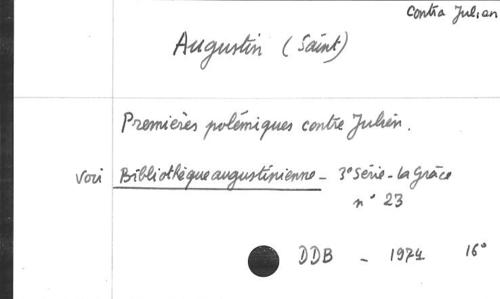 Contra Julian
Augustin (Saint)
Premières polémiques contre Julien.
Voir Bibliothèque augustinienne - 3° Série - La Grâce
n° 23
DDB - 1974 16°